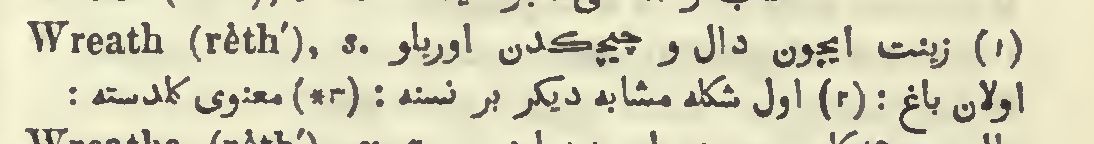 Wreath (rėth′), s. (١) زينت ايچون دال و چيچكدن اوريلو
اولان باغ : (٢) اول شكله مشابه ديكر بر نسنه : (٣*) معنوى كلدسته :